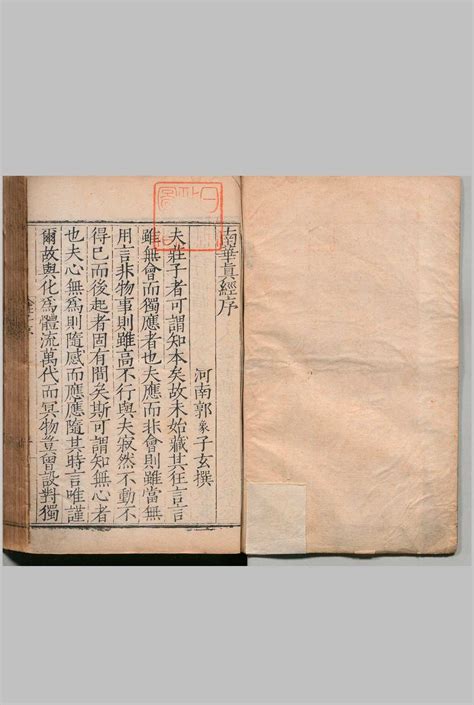 南華真經序
河南郭象子玄撰
夫莊子者可謂知本矣故未始藏其狂言言
雖無會而獨應者也夫應而非會則雖當無
用言非物事則雖高不行與夫寂然不動不
得已而後起者固有間矣斯可謂知無心者
也夫心無為則隨感而應應隨其時言唯謹
爾故與化為體流萬代而冥物豈曾設對獨